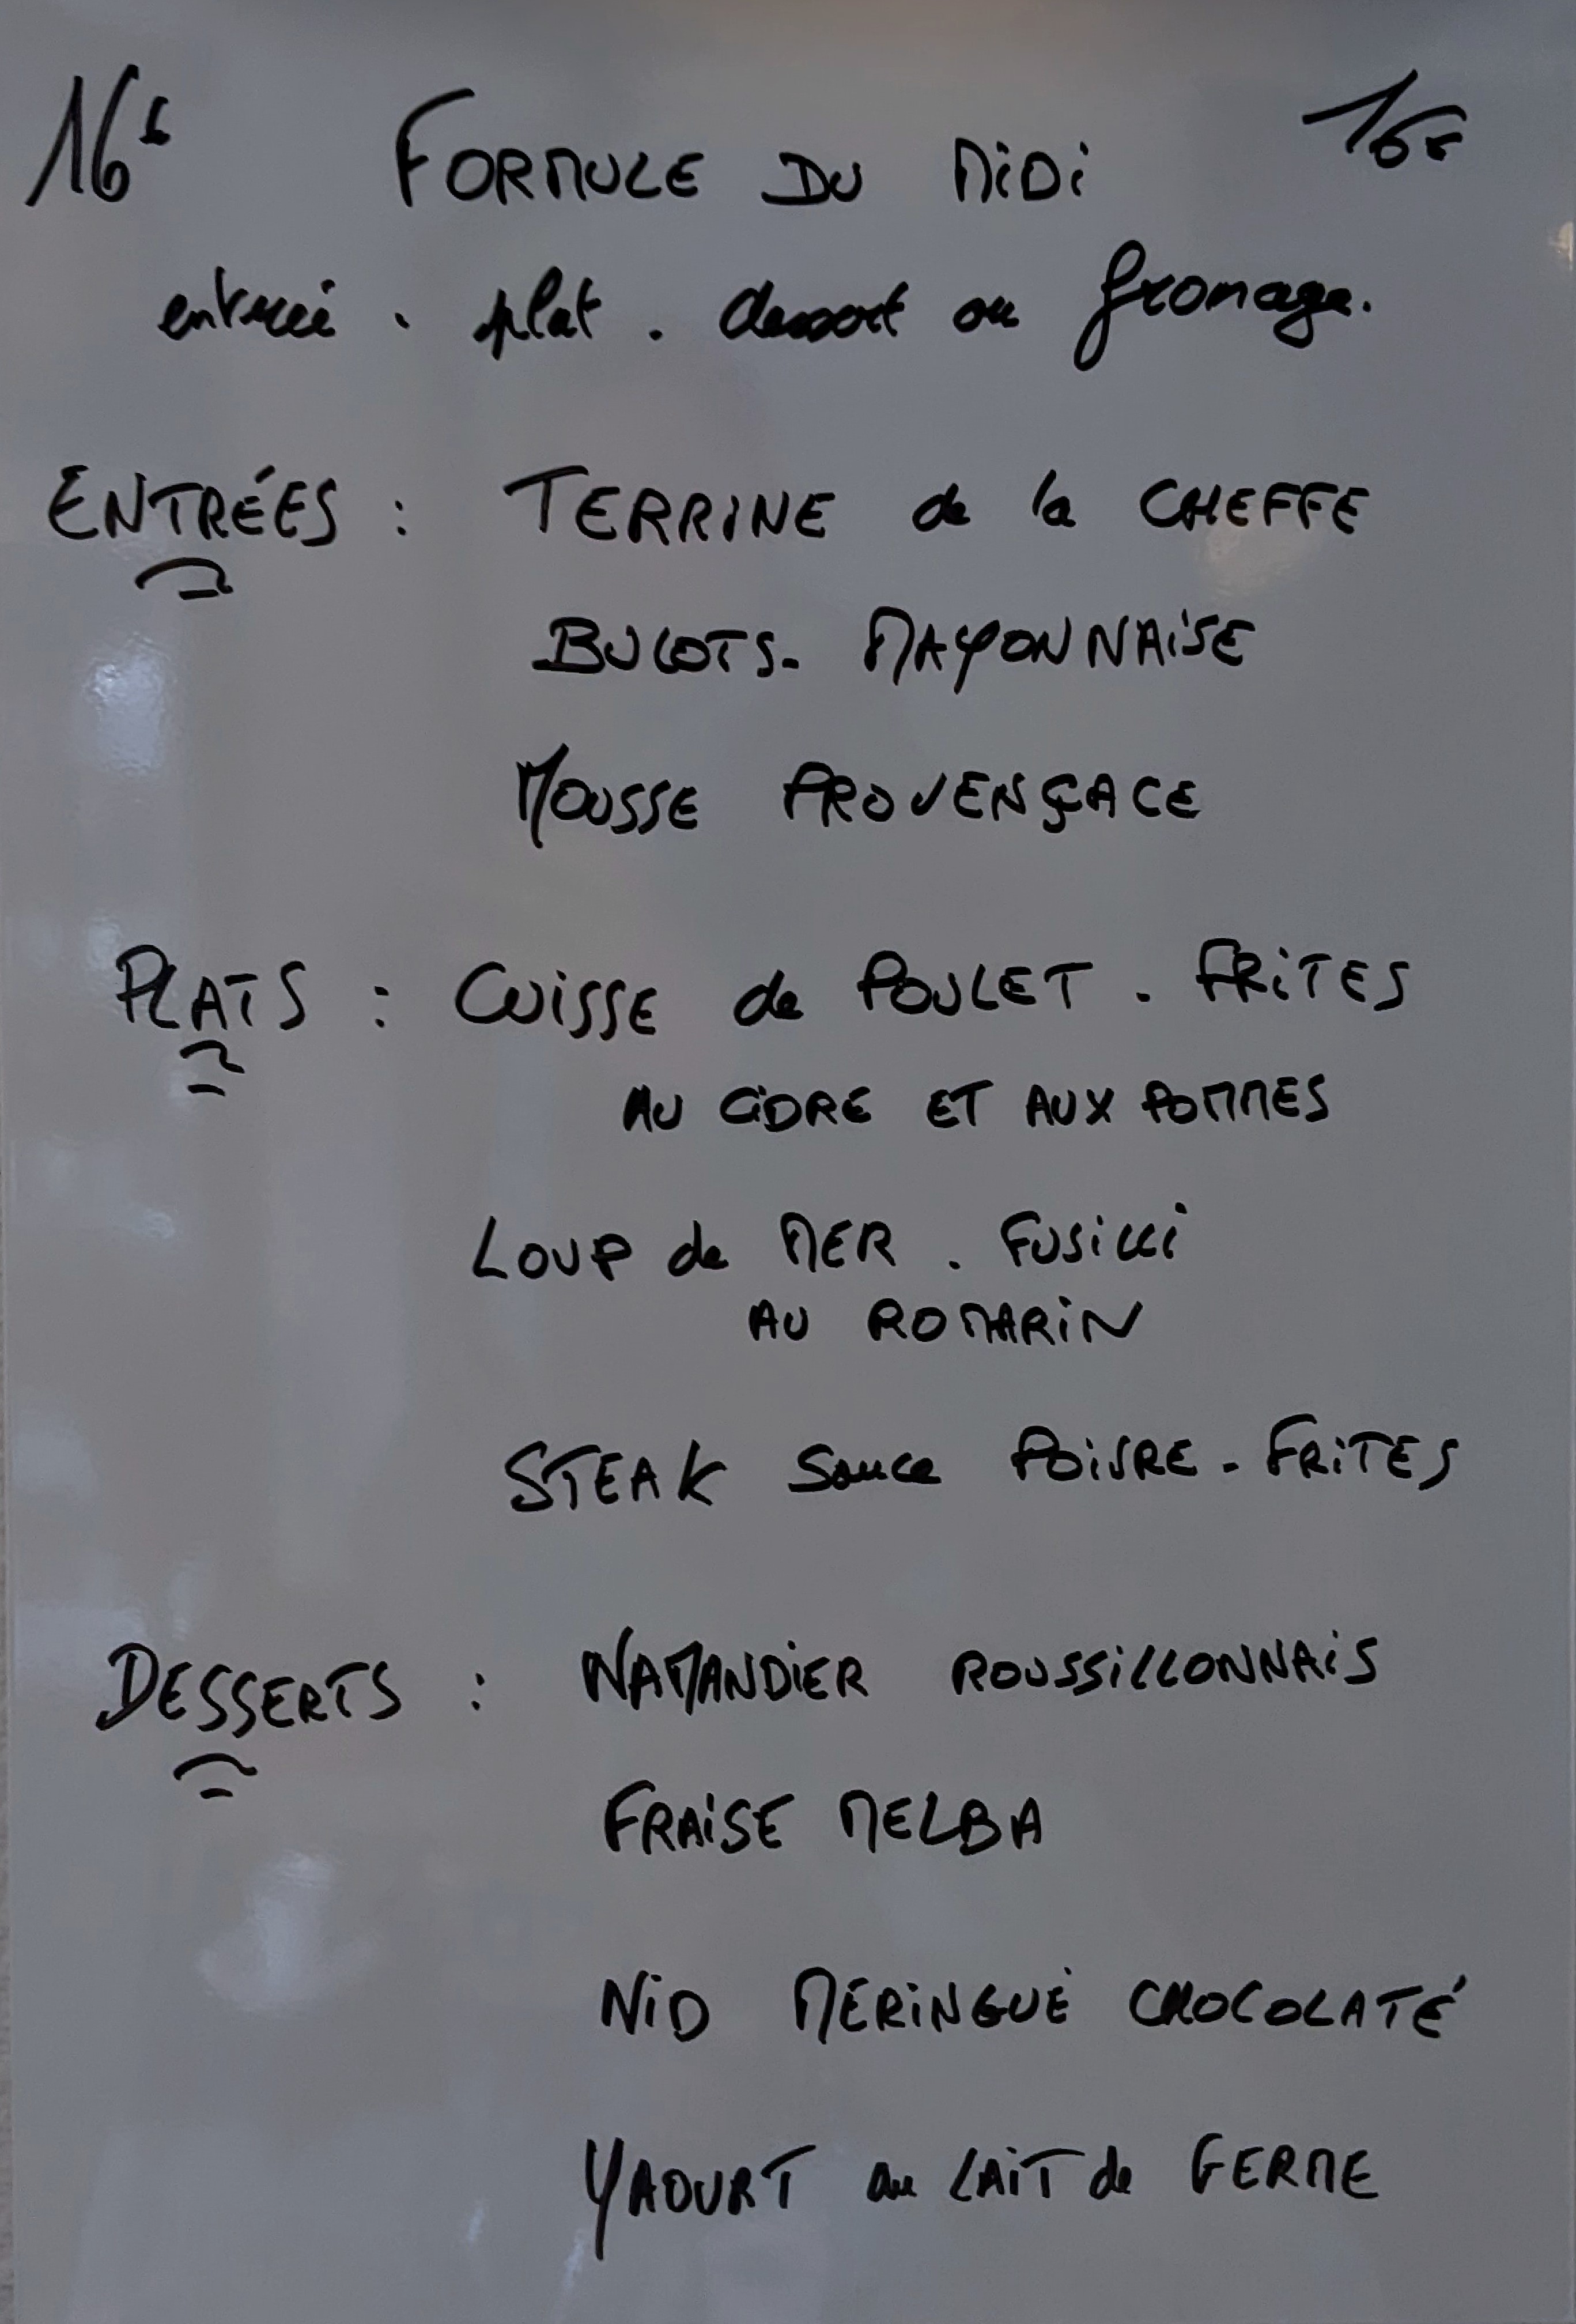 16€ FORMULE DU MIDI 16€
entrée . plat . dessert ou fromage.
ENTRÉES : TERRINE de la CHEFFE
BULOTS - MAYONNAISE
MOUSSE PROVENÇALE
PLATS : CUISSE de POULET . FRITES
AU CIDRE ET AUX POMMES
LOUP de MER . FUSILLI
AU ROMARIN
STEAK Sauce POIVRE - FRITES
DESSERTS : NAMANDIER ROUSSILLONNAIS
FRAISE MELBA
NID MERINGUÉ CHOCOLATÉ
YAOURT au LAIT de FERME